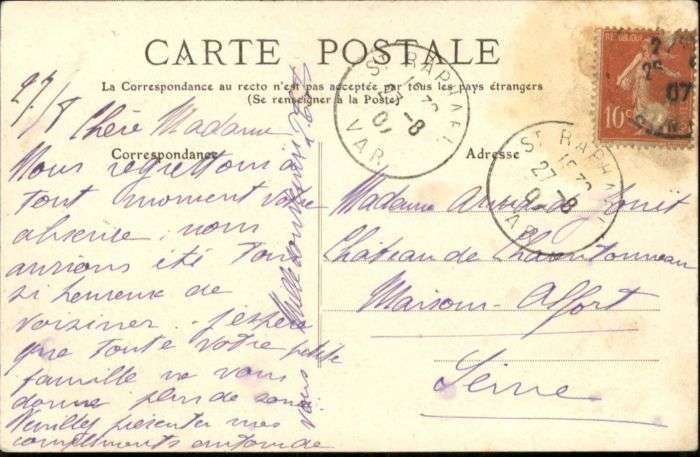 CARTE POSTALE
La Correspondance au recto n'est pas acceptée par tous les pays étrangers
(Se renseigner à la Poste)
Correspondance
Adresse
27/8
Chère Madame
Nous regrettons à
tout moment votre
absence, nous
aurions été tous
si heureux de
voisiner. J'espère
que toute votre petite
famille ne vous
donne plus de souci
Veuillez présenter mes
compliments autour de
vous
Madame
Château de
Maisons-Alfort
Seine
ST RAPHAEL
27 -8
07
VAR
ST RAPHAEL
27 -8
07
VAR
10c
07